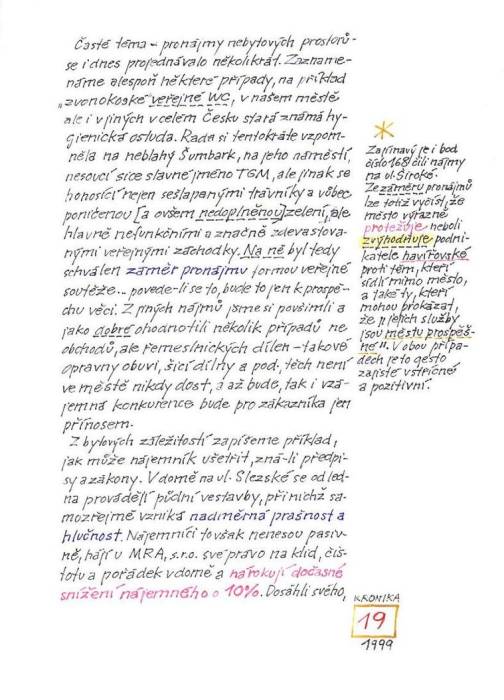 Časté téma - pronájmy nebytových prostorů -
se i dnes projednávalo několikrát. Zazname-
náme alespoň některé případy, na příklad
„zvonokoské veřejné WC, v našem městě
ale i v jiných v celém Česku stará známá hy-
gienická ostuda. Rada si tentokráte vzpom-
něla na neblahý Šumbark, na jeho náměstí,
nesoucí sice slavné jméno TGM, ale jinak se
honosící nejen sešlapanými trávníky a vůbec
poničenou [a ovšem nedoplněnou] zelení, ale
hlavně nefunkčními a značně zdevastova-
nými veřejnými záchodky. Na ně byl tedy
schválen záměr pronájmu formou veřejné
soutěže... povede-li se to, bude to jen k prospě-
chu věci. Z jiných nájmů jsme si povšimli a
jako dobré ohodnotili několik případů ne
obchodů, ale řemeslnických dílen - takové
opravny obuvi, šicí dílny a pod. těch není
ve městě nikdy dost, a až bude, tak i vzá-
jemná konkurence bude pro zákazníka jen
přínosem.
Z bytových záležitostí zapíšeme příklad,
jak může nájemník ušetřit, zná-li předpi-
sy a zákony. V domě na ul. Slezské se od led-
na provádějí půdní vestavby, při nichž sa-
mozřejmě vzniká nadměrná prašnost a
hlučnost. Nájemníci to však nenesou pasiv-
ně, hájí u MRA, s.r.o. své právo na klid, čis-
totu a pořádek v domě a nárokují dočasné
snížení nájemného o 10%. Dosáhli svého,
Zajímavý je i bod
číslo 168 čili nájmy
na ul. Široké.
Ze záměru pronájmů
lze totiž vyčíst, že
město výrazně
protežuje neboli
zvýhodňuje podni-
katele havířovské
proti těm, kteří
sídlí mimo město,
a také ty, kteří
mohou prokázat,
že jejich služby
jsou „městu prospěš-
né". V obou přípa-
dech je to gesto
zajisté vstřícné
a pozitivní.
KRONIKA
19
1999